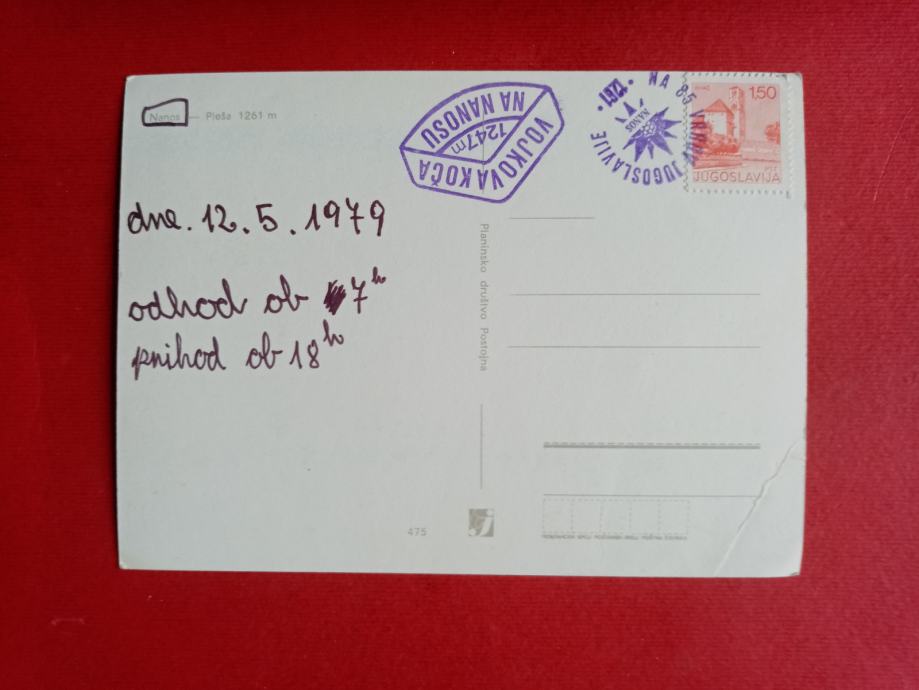 Nanos — Pleša 1261 m
VOJKOVA KOČA
1247m
NA NANOSU
NA 85 VRHOV JUGOSLAVIJE
·1261·
NANOS
1,50
JUGOSLAVIJA
dne. 12.5.1979
odhod ob 7h
prihod ob 18h
Planinsko društvo Postojna
475